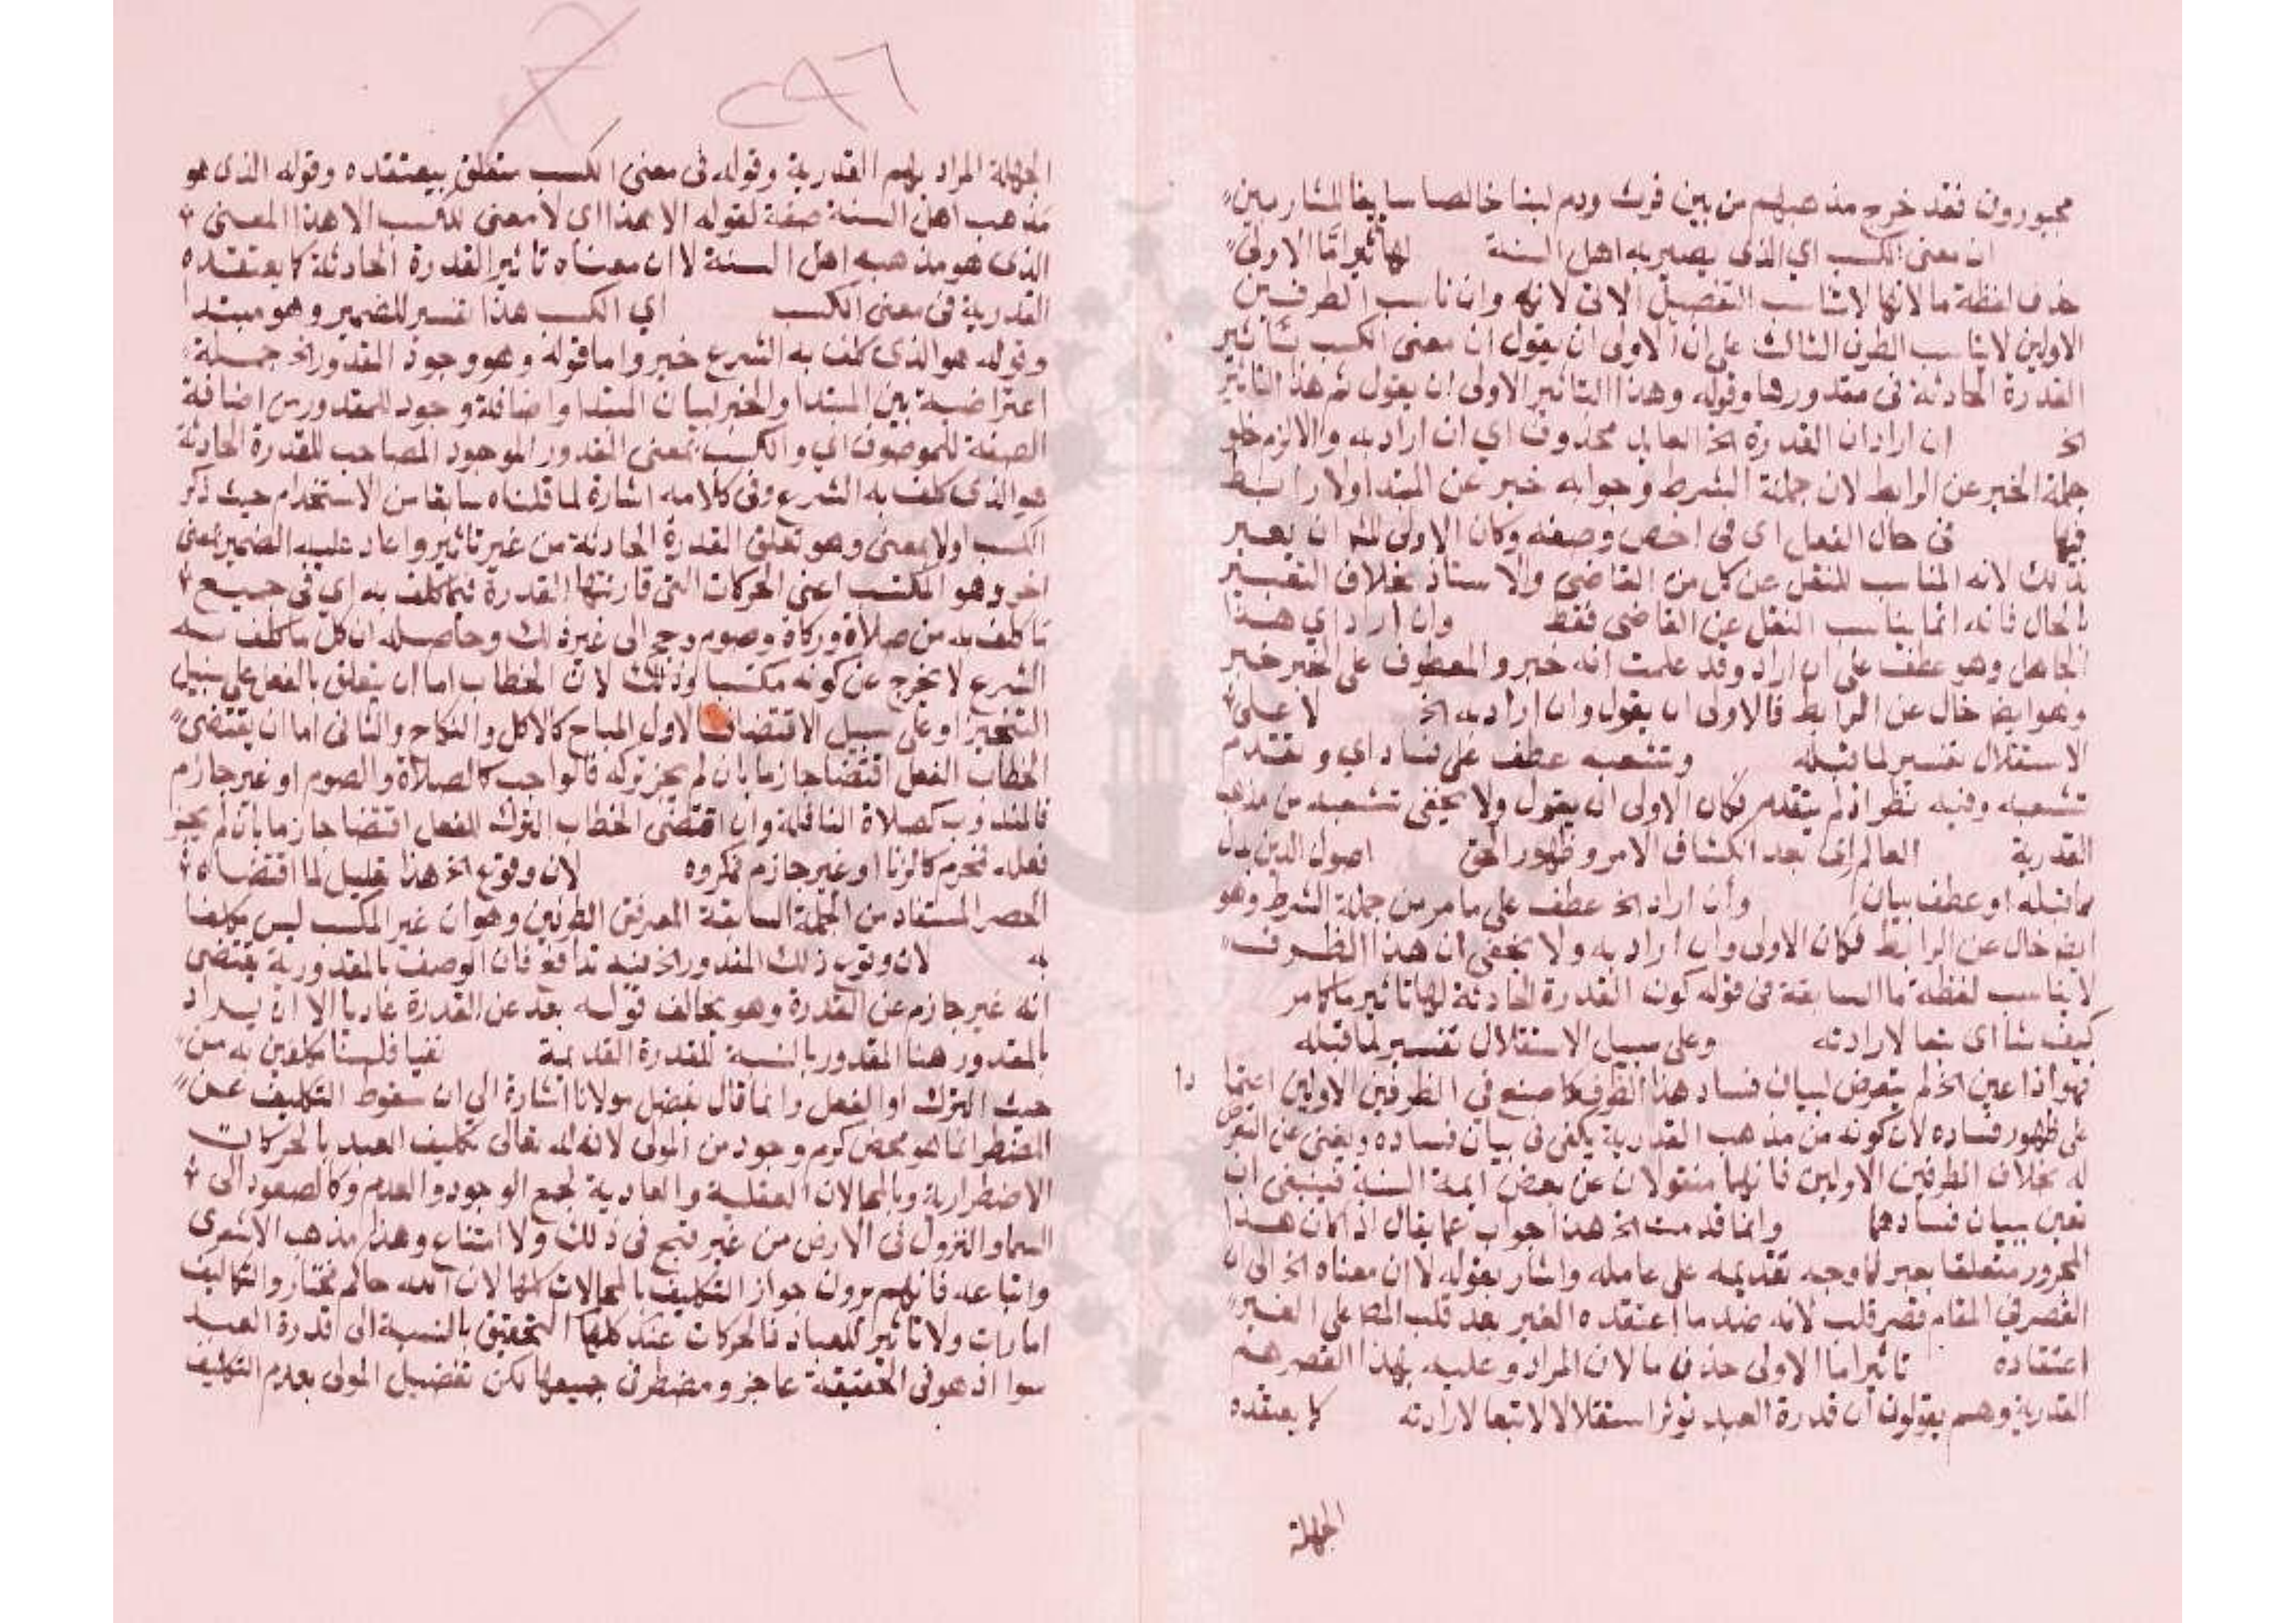 مجبورون فقد خرج مذهبهم من بين فرث ودم لبنا خالصا سايغا للشاربين
ان معنى الكسب اي الذى يصير به اهل السنة لها تاثيرا ما الاولى
حذف لفظة ما لانها لا تناسب التفصيل الاتى لانه وان ناسب الطرفين
الاولين لا يناسب الطرف الثالث على ان الاولى ان يقول ان معنى الكسب تاثير
القدرة الحادثة فى مقدورها وقوله وهذا التاثير الاولى ان يقول ثم هذا التاثير
الخ ان اراد ان القدرة الخ العايد محذوف اي ان اراد به والا لزم خلو
جملة الخبر عن الرابط لان جملة الشرط وجوابه خبر عن المبتدا ولا رابط
فيها فى حال الفعل اى فى اخص وصفه وكان الاولى له ان يعبر
بذلك لانه المناسب للنقل عن كل من القاضى والاستاذ بخلاف التعبير
بالحال فانه انما يناسب النقل عن القاضى فقط وان اراد اي هذا
الجاهل وهو عطف على ان اراد وقد علمت انه خبر والمعطوف على الخبر خبر
وهو ايضا خال عن الرابط فالاولى ان يقول وان اراد به الخ لا على
الاستقلال تفسير لما قبله وتشعبه عطف على فساد اي وتقدم
تشعبه وفيه نظر اذ لم يتقدم فكان الاولى ان يقول ولا يخفى تشعبه من مذهب
القدرية العالم اى بعد انكشاف الامر وظهور الحق اصول الدين بدل
مما قبله او عطف بيان وان اراد الخ عطف على ما مر من جملة الشرط وهو
ايضا خال عن الرابط فكان الاولى وان اراد به ولا يخفى ان هذا الطرف
لا يناسب لفظة ما السابقة فى قوله كون القدرة الحادثة لها تاثير ما كما مر
كيف شا اى تبعا لارادته وعلى سبيل الاستقلال تفسير لما قبله
فهو اذا عين الخ لم يتعرض لبيان فساد هذا الطرف كما صنع في الطرفين الاولين اعتمادا
على ظهور فساده لان كونه من مذهب القدرية يكفى فى بيان فساده ويغنى عن التعرض
له بخلاف الطرفين الاولين فانهما منقولان عن بعض ايمة السنة فينبغى ان
يعين ببيان فسادهما وانما قدمت الخ هذا جواب عما يقال اذا كان هذا
المجرور متعلقا بعبر لما وجه تقديمه على عامله واشار بقوله لا ان معناه الخ الى ان
القصر في المقام قصر قلب لانه ضد ما اعتقده الغير بعد قلب على الغير
اعتقاده تاثيرا ما الاولى حذف ما لان المراد وعليه بهذا القصر هم
القدرية وهم يقولون ان قدرة العبد توثر استقلالا لا تبعا لارادته كما يعتقده
الجهلة
الجهلة المراد بهم القدرية وقوله فى معنى الكسب متعلق بيعتقده وقوله الذى هو
مذهب اهل السنة صفة لقوله الا هذا اى لا معنى للكسب الا هذا المعنى
الذى هو مذهب اهل السنة لا ان معناه تاثير القدرة الحادثة كما يعتقده
القدرية فى معنى الكسب اي الكسب هذا تفسير للضمير وهو مبتدا
وقوله هو الذى كلف به الشرع خبر واما قوله وهو وجود المقدور الخ جملة
اعتراضية بين المبتدا والخبر لبيان المبتدا واضافة وجود للمقدور من اضافة
الصفة للموصوف اي والكسب بمعنى المقدور الموجود المصاحب للقدرة الحادثة
هو الذى كلف به الشرع وفى كلامه اشارة لما قلناه سابقا من الاستخدام حيث ذكر
الكسب اولا بمعنى وهو تعلق القدرة الحادثة من غير تاثير واعاد عليه الضمير بمعنى
اخر وهو المكتسب اعنى الحركات التى قارنتها القدرة فيما كلف به اي فى جميع
ما كلف به من صلاة وزكاة وصوم وحج الى غير ذلك وحاصله ان كل ما كلف به
الشرع لا يخرج عن كونه مكتسبا وذلك لان الخطاب اما ان يتعلق بالفعل على سبيل
التخيير او على سبيل الاقتضا فالاول المباح كالاكل والنكاح والثانى اما ان يقتضى
الخطاب الفعل اقتضا جازما بان لم يجز تركه فالواجب كالصلاة والصوم او غير جازم
فالمندوب كصلاة النافلة وان اقتضى الخطاب الترك للفعل اقتضا جازما بان لم يجز
فعله فمحرم كالزنا او غير جازم فمكروه لان وقوع الخ هذا تعليل لما اقتضاه
الحصر المستفاد من الجملة السابقة المعرفة الطرفين وهو ان غير المكتسب ليس مكلفا
به لان وقوع ذلك المقدور الخ فيه تدافع فان الوصف بالمقدورية يقتضى
انه غير جازم عن القدرة وهو يخالف قوله بعد عن القدرة عاديا الا ان يراد
بالمقدور هنا المقدور بالنسبة للقدرة القديمة نفيا فلسنا مكلفين به من
حيث الترك او الفعل وانما قال بفضل مولانا اشارة الى ان سقوط التكليف عن
المضطر انما هو محض كرم وجود من المولى لانه له تعالى تكليف العبد بالحركات
الاضطرارية وبالمحالات العقلية والعادية كجمع الوجود والعدم وكالصعود الى
السما والنزول فى الارض من غير قبح فى ذلك ولا امتناع وهذا مذهب الاشعرى
واتباعه فانهم يرون جواز التكليف بالمحالات كلها لان الله حاكم مختار والتكاليف
امارات ولا تاثير للعباد فالحركات عند كلها التحقيق بالنسبة الى قدرة العبد
سوا اذ هو فى الحقيقة عاجز ومضطر فى جميعها لكن تفضيل المولى بعدم التكليف